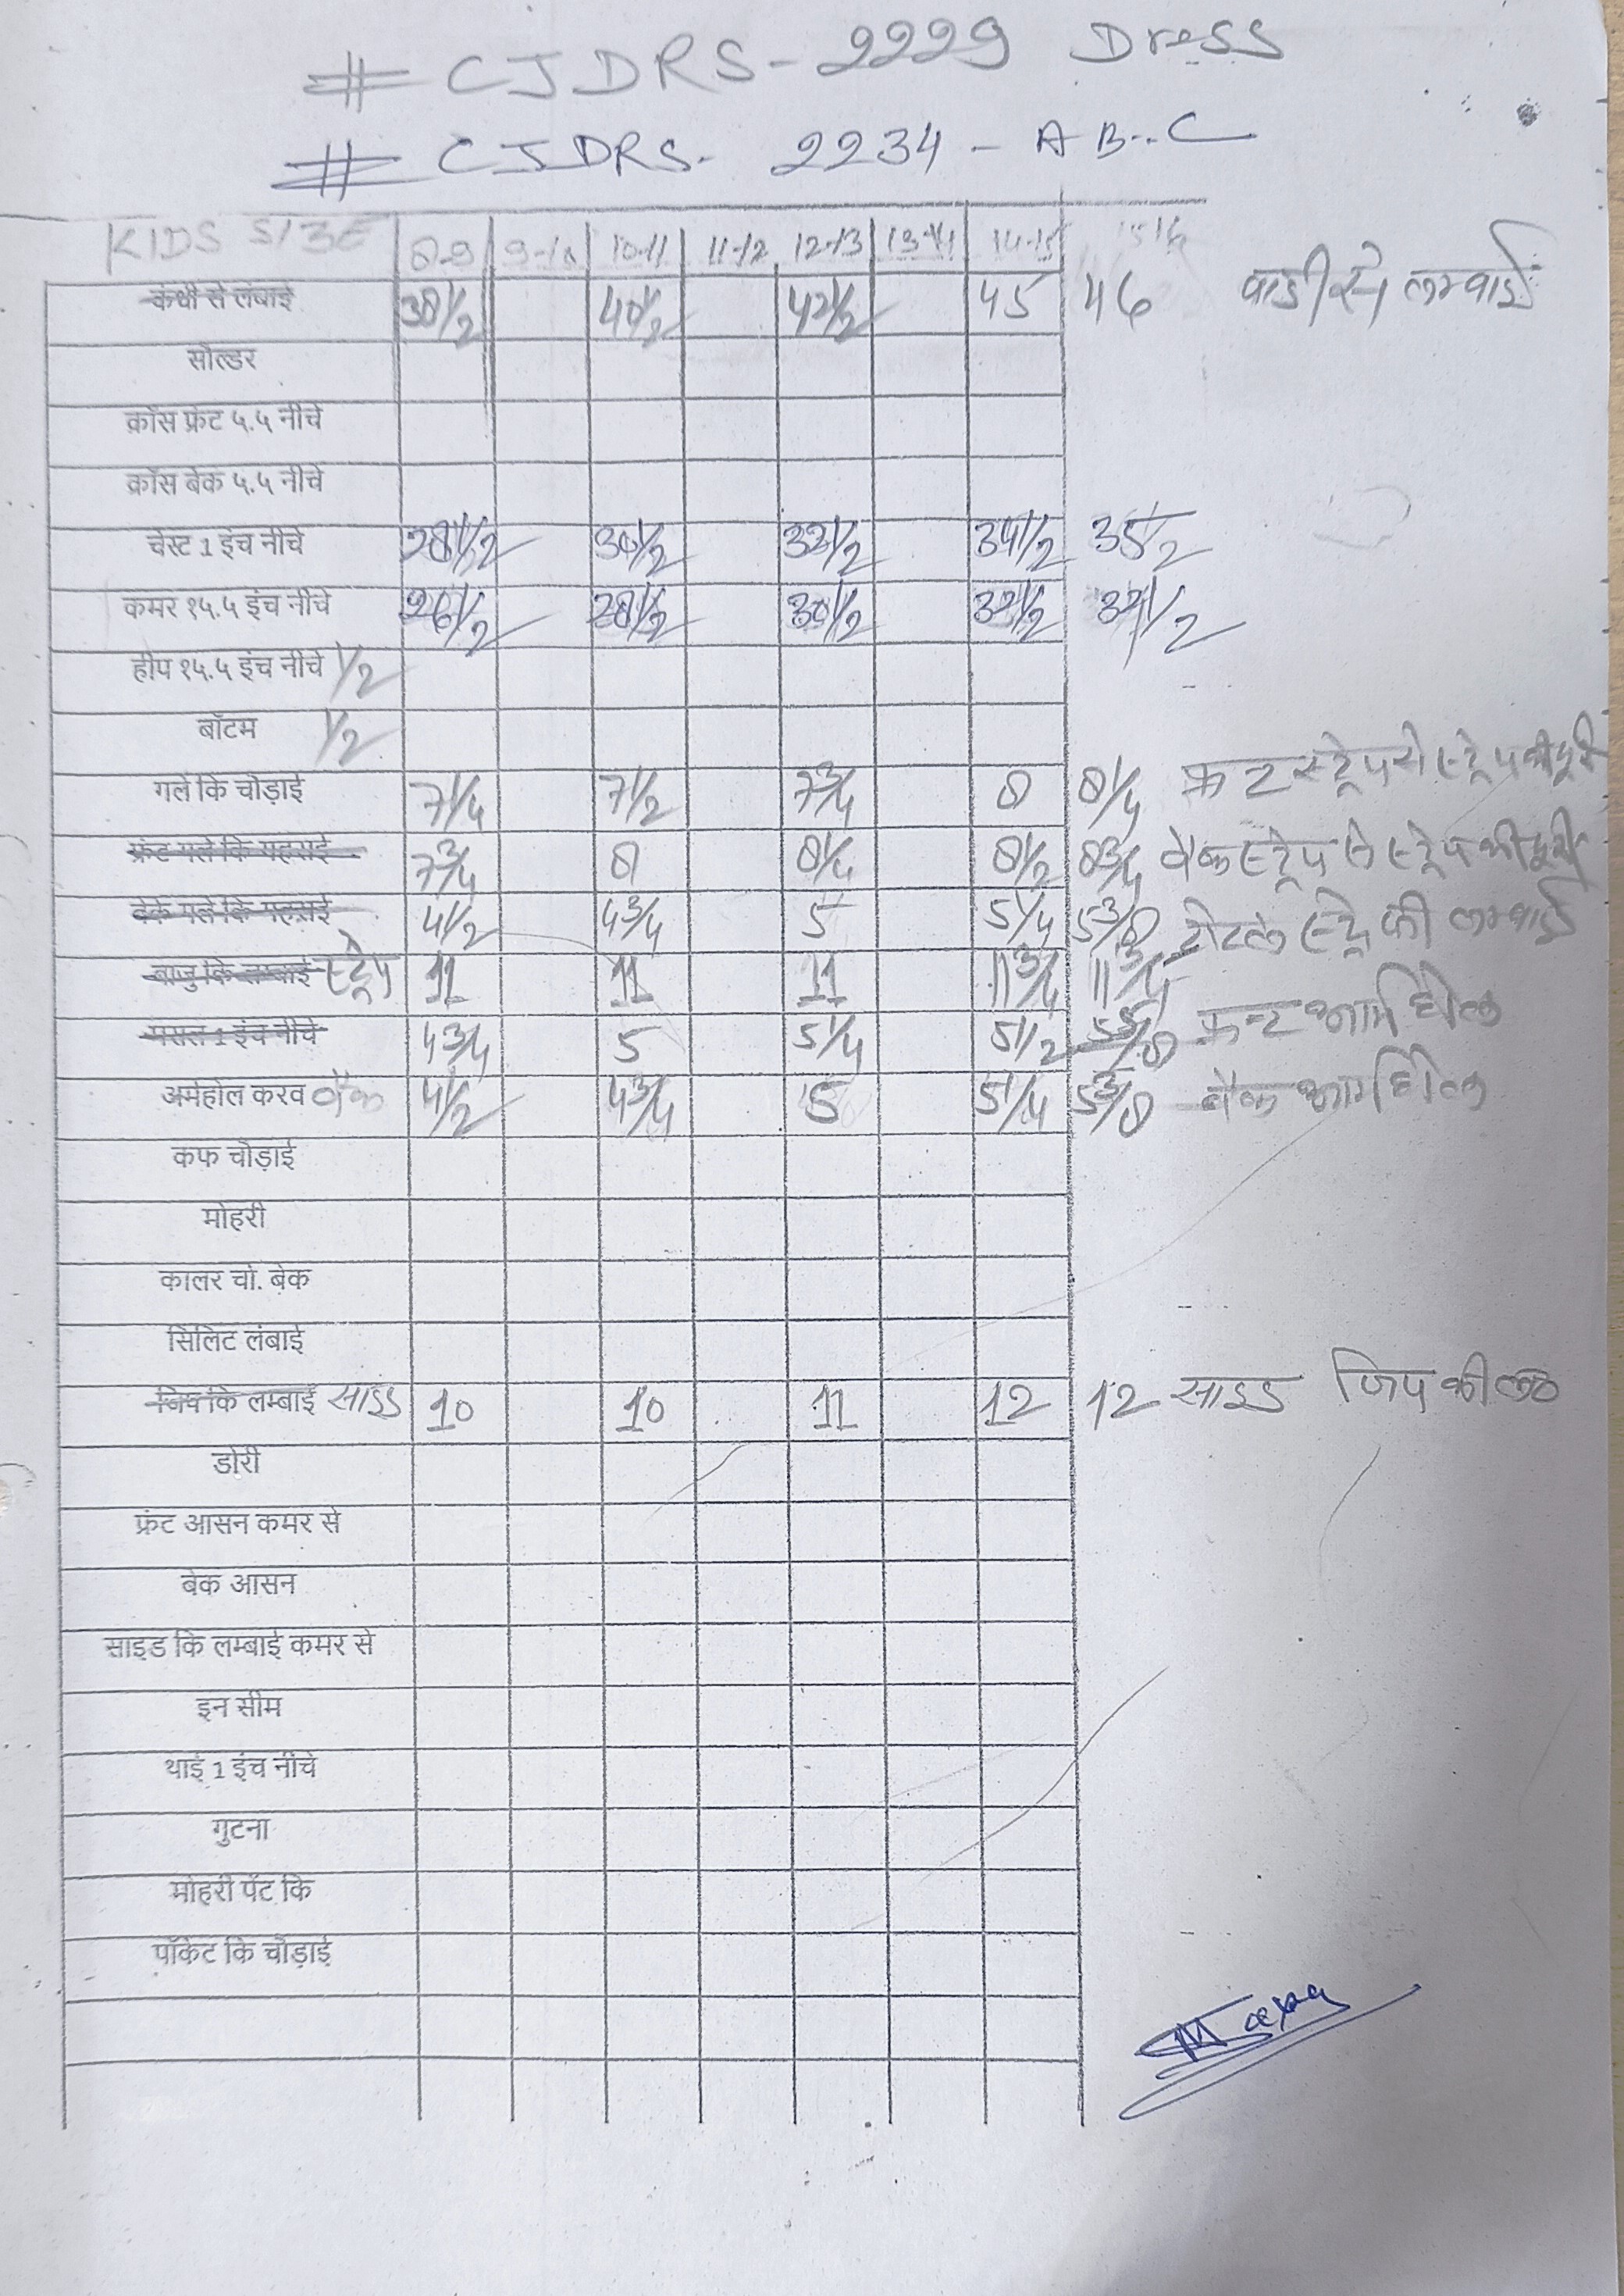 # CJDRS-2229 Dress
# CJDRS- 2234 - A B-C
KIDS SIZE 8-9 9-10 10-11 11-12 12-13 13-14 14-15 15-16
कंधी से लंबाई 38 1/2 40 1/2 42 1/2 45 46 बाडी से लम्बाई
सोल्डर
क्रॉस फ्रंट ५.५ नीचे
क्रॉस बेक ५.५ नीचे
चेस्ट 1 इंच नीचे 28 1/2 30 1/2 32 1/2 34 1/2 35 1/2
कमर १५.५ इंच नीचे 26 1/2 28 1/2 30 1/2 32 1/2
हीप १५.५ इंच नीचे 1/2
बॉटम 1/2
गले कि चोड़ाई 7 1/4 7 1/2 7 3/4 8 8 1/4 फ्रन्ट स्ट्रेप से स्ट्रेप की दूरी
फ्रंट गले कि गहराई 7 3/4 8 8 1/4 8 1/2 8 3/4 बैक स्ट्रेप से स्ट्रेप की दूरी
बेक गले कि गहराई 4 1/2 4 3/4 5 5 1/4 5 3/8
बाजु कि लम्बाई स्ट्रेप 11 11 11 11 3/4 11 3/4 टोटल स्ट्रेप की लम्बाई
मसल 1 इंच नीचे 4 3/4 5 5 1/4 5 1/2 5 5/8 फ्रन्ट आर्महोल
अर्महोल करव बैक 4 1/2 4 3/4 5 5 1/4 5 3/8 बैक आर्महोल
कफ चोड़ाई
मोहरी
कालर चो. बेक
सिलिट लंबाई
जिप कि लम्बाई साइड 10 10 11 12 12 साइड जिप की ल०
डोरी
फ्रंट आसन कमर से
बेक आसन
साइड कि लम्बाई कमर से
इन सीम
थाई 1 इंच नीचे
गुटना
मोहरी पेंट कि
पॉकेट कि चोड़ाई